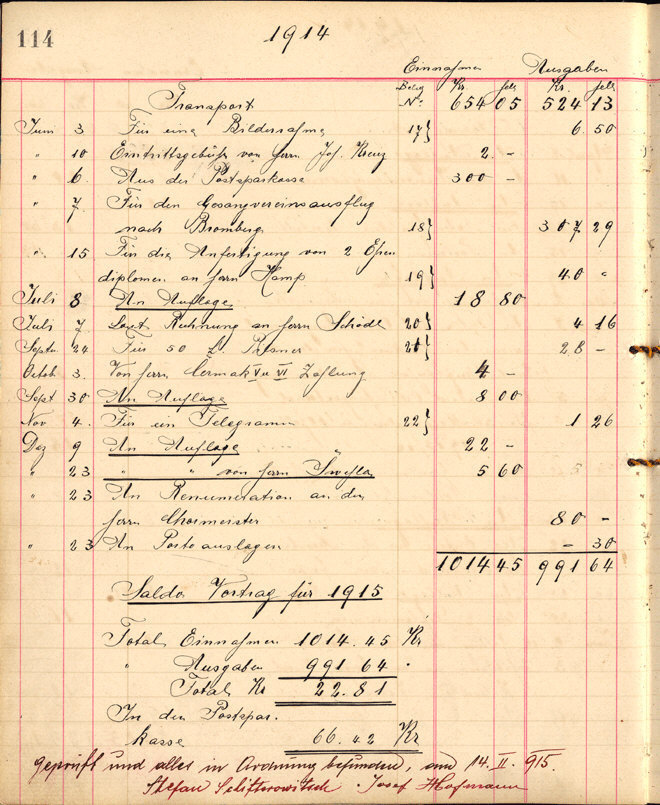 114
1914
Einnahmen Ausgaben
Beleg Kr. hels Kr. hels
Transport No. 654 05 524 13
Juni 3 Für eine Bilderrahme 17} 6. 50
" 10 Eintrittsgebühr von Herrn Joh. Kreuz 2. –
" 6. Aus der Postsparkasse 300 –
" 7. Für den Gesangvereinsausflug
nach Bromberg. 18} 307 29
" 15 Für die Anfertigung von 2 Ehren
diplomen an Herrn Kamp 19} 40 "
Juli 8 An Auflage 18 80
Juli 7 Laut Rechnung an Herrn Schödl 20} 4 16
Septm. 24 Für 50 L 21} 28 –
Octob. 3. Von Herrn Cermak V u VI Zahlung 4 –
Sept 30 An Auflage 8 00
Nov 4. Für ein Telegramm 22} 1 26
Dez 9 An Auflage 22 –
" 23 " " von Herrn 5 60
" 23 An Renumeration an den
Herrn Chormeister 80 –
" 23 An Porto auslagen – 30
1014 45 991 64
Saldo Vortrag für 1915
Total Einnahmen 1014. 45 Kr
" Ausgaben 991 64 "
Total Kr 22. 81
In der Postspar.
kasse 66. 42 Kr
geprüft und alles in Ordnung befunden, am 14. II. 915.
Stefan Josef Hofmann